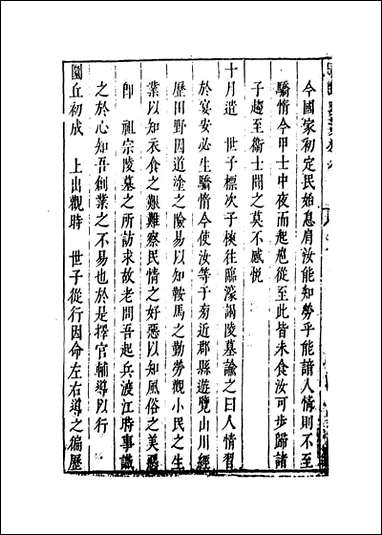 今國家初定民始息肩汝能知勞乎能諳人情則不至
驕惰今甲士中夜而起扈從至此皆未食汝可步歸諸
子趨至衞士聞之莫不感悅
十月遣　世子標次子樉往臨濠謁陵墓諭之曰人情習
於宴安必生驕惰今使汝等于旁近郡縣遊覽山川經
歷田野因道塗之險易以知鞍馬之勤勞觀小民之生
業以知衣食之艱難察民情之好惡以知風俗之美惡
卽　祖宗陵墓之所訪求故老問吾起兵渡江時事識
之於心知吾創業之不易也於是擇官輔導以行
圜丘初成　上出觀時　世子從行因命左右導之徧歷